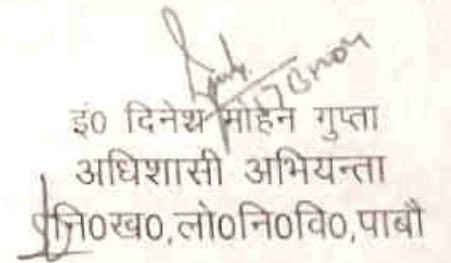 इं0 दिनेश मोहन गुप्ता
अधिशासी अभियन्ता
नि0ख0,लो0नि0वि0,पाबौ